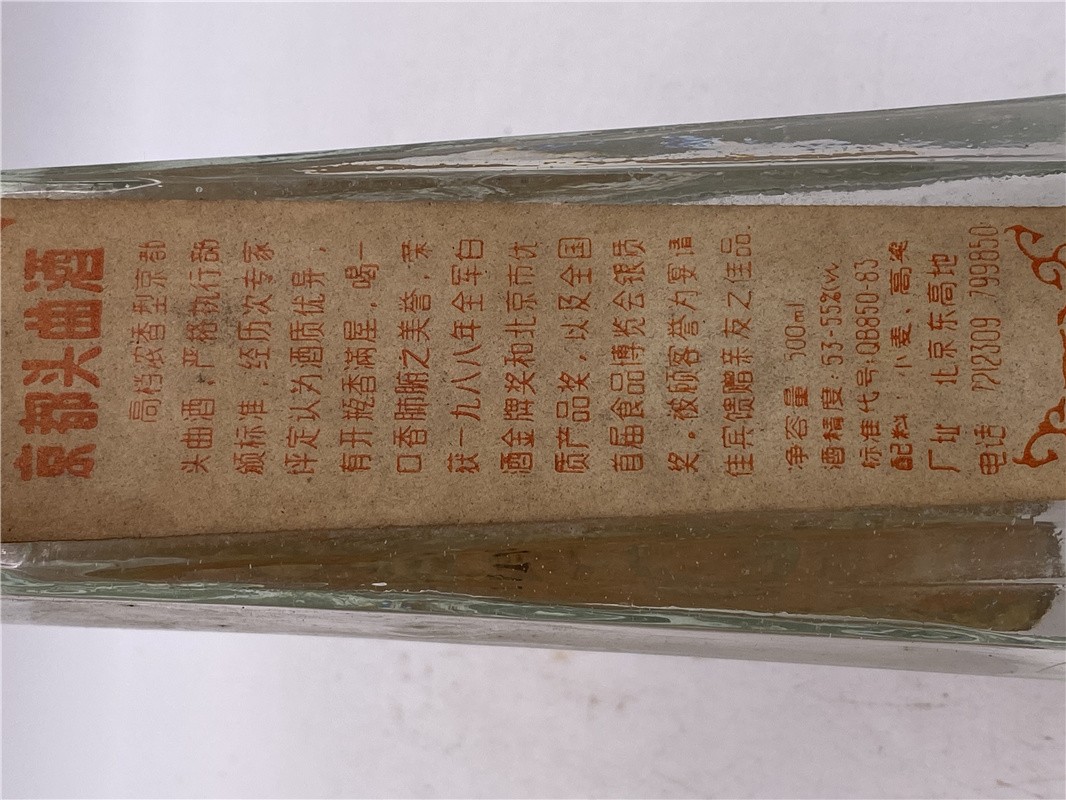 京都头曲酒
高档浓香型京都
头曲酒，严格执行部
颁标准，经历次专家
评定以为酒质优异，
有开瓶香满屋，喝一
口香肺腑之美誉，荣
获一九八八年全军白
酒金牌奖和北京市优
质产品奖，以及全国
首届食品博览会银质
奖。被顾客誉为宴请
佳宾馈赠亲友之佳品。
净容量 500ml
酒精度：53-55%(v/v)
标准代号：QB850-83
配料：小麦、高粱
厂址 北京东高地
电话 7212309 799850